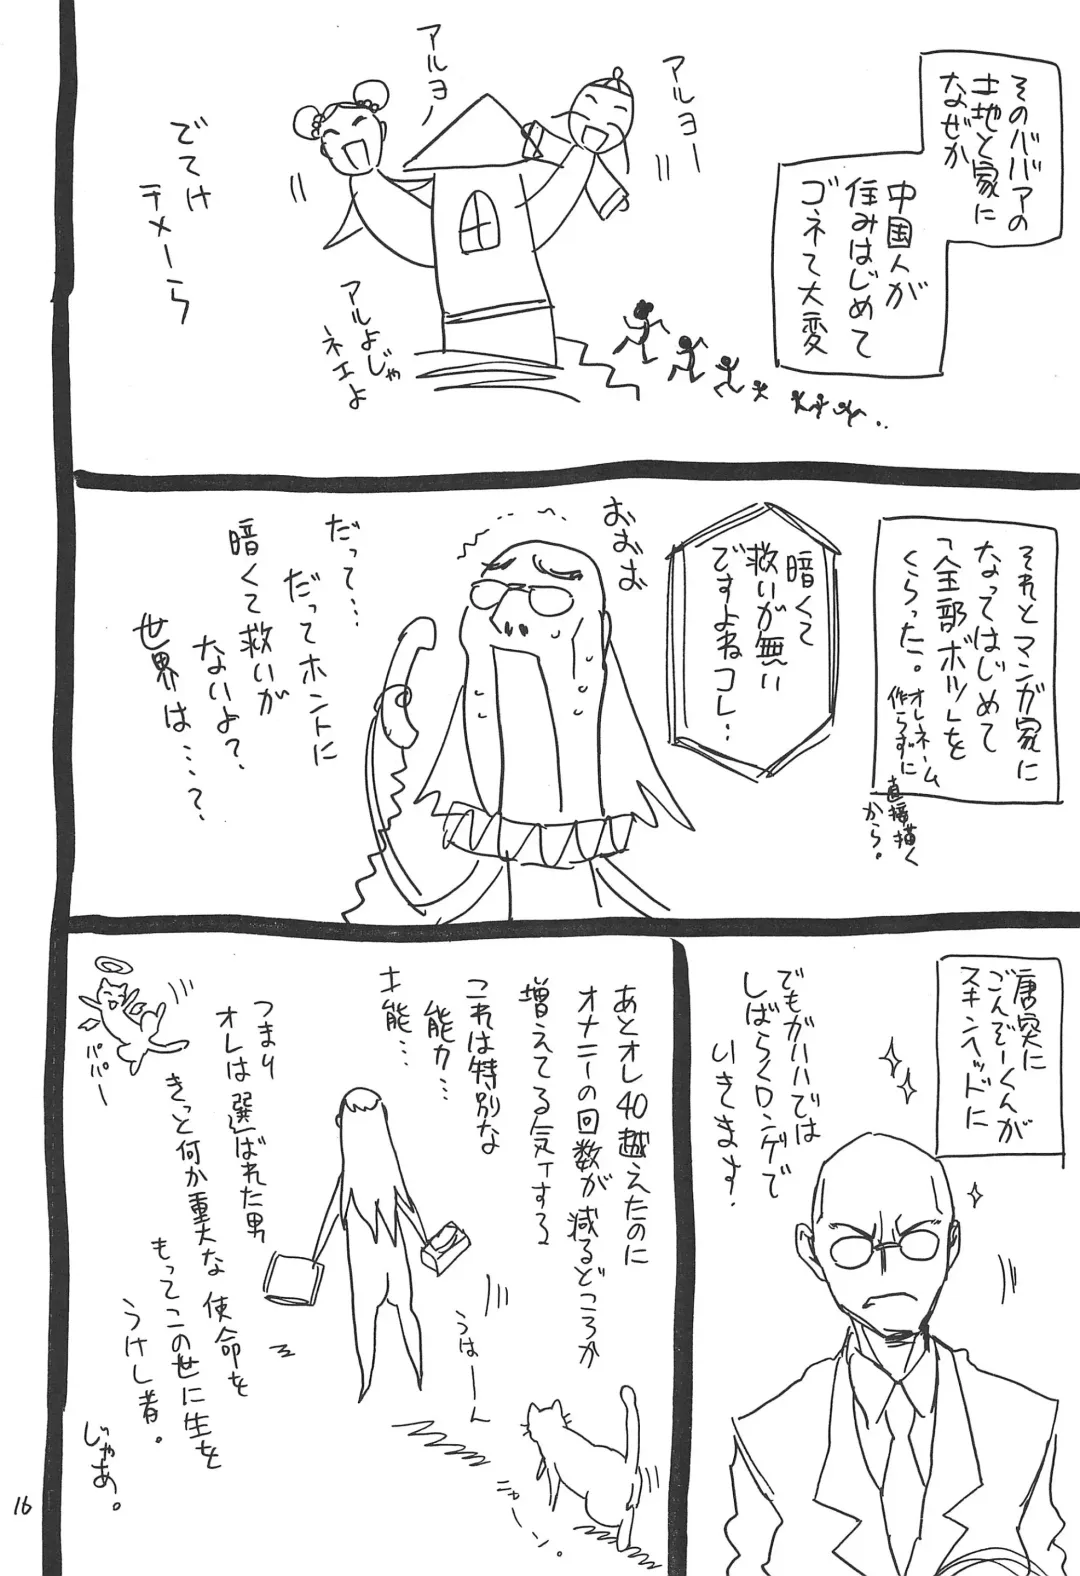 そのババアの
土地と家に
なぜか
中国人が
住みはじめて
ゴネて大変
アルヨー
アルヨノ
でてけ
テメーら
アルよじゃ
ネエよ
それとマンガ家に
なってはじめて
「全部ボツ」を
くらった。
オレネーム
作らずに
直接描く
から。
暗くて
救いが無い
ですよねコレ…
おおお
だって…
だってホントに
暗くて救いが
ないよ?
世界は…?
唐突に
ごんぞーくんが
スキンヘッドに
でもガハハでは
しばらくロンゲで
いきます.
あとオレ40越えたのに
オナニーの回数が減るどころか
増えてる気ィする
これは特別な
能力…
才能…
つまり
オレは選ばれた男
きっと何か重大な使命を
もってこの世に生を
うけし者。
じゃあ。
パパー
うはーん
ニャーン。
16